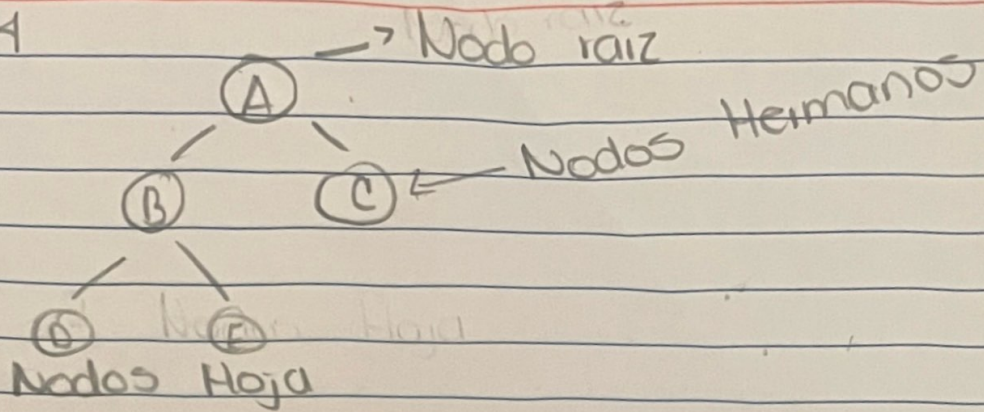 Nodo raiz
A
Nodos Hermanos
B C
D E
Nodos Hoja